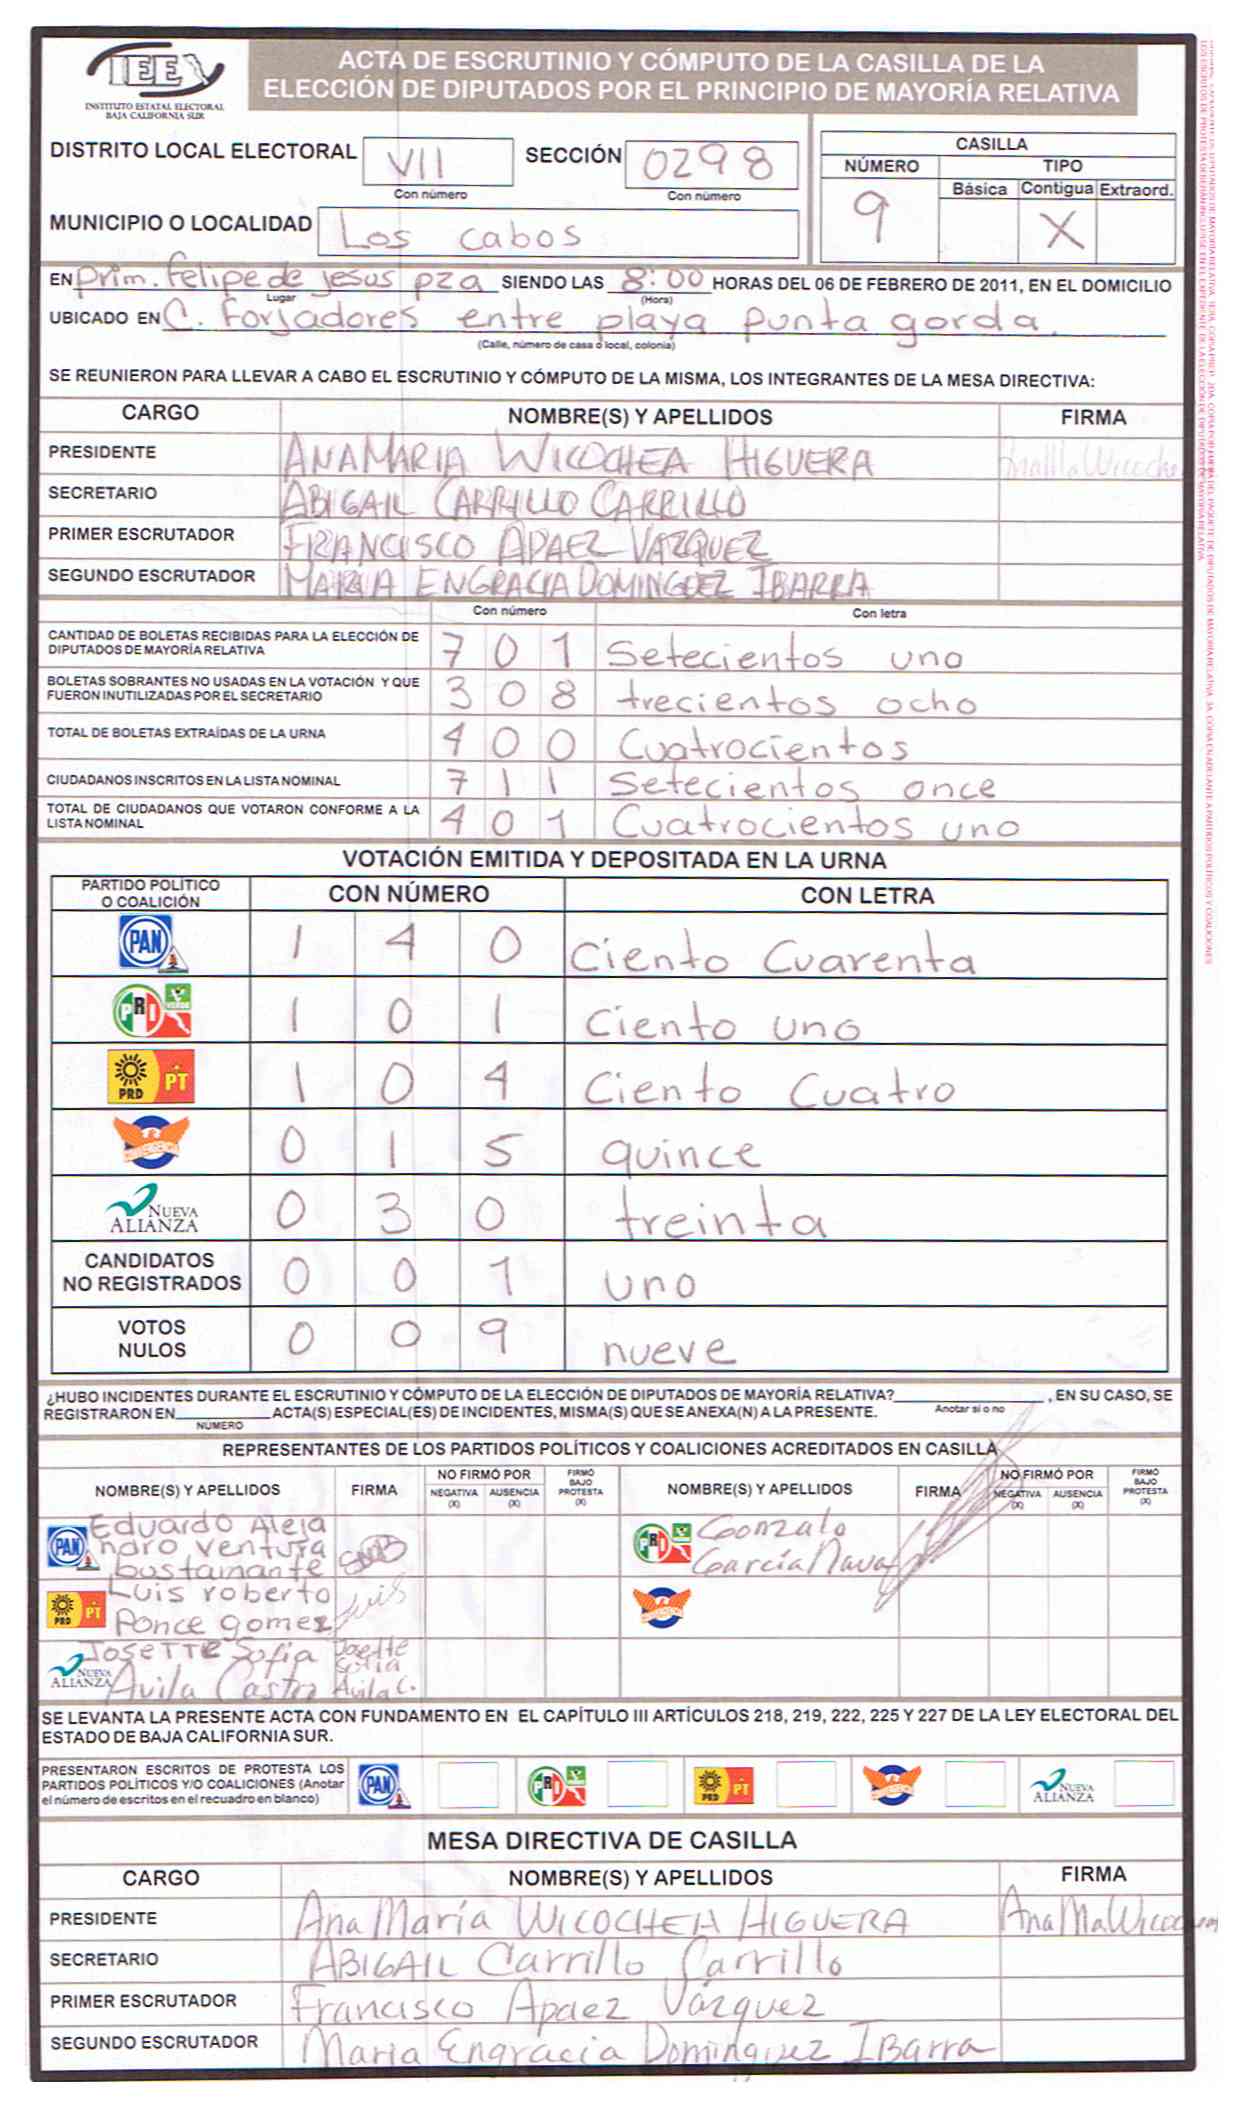 IEEX
INSTITUTO ESTATAL ELECTORAL
BAJA CALIFORNIA SUR
ACTA DE ESCRUTINIO Y CÓMPUTO DE LA CASILLA DE LA
ELECCIÓN DE DIPUTADOS POR EL PRINCIPIO DE MAYORÍA RELATIVA
DISTRITO LOCAL ELECTORAL VII SECCIÓN 0298
Con número Con número
CASILLA
NÚMERO TIPO
Básica Contigua Extraord.
9 X
MUNICIPIO O LOCALIDAD Los cabos
EN prim. felipe de jesus pza SIENDO LAS 8:00 HORAS DEL 06 DE FEBRERO DE 2011, EN EL DOMICILIO
Lugar (Hora)
UBICADO EN C. forjadores entre playa punta gorda.
(Calle, número de casa o local, colonia)
SE REUNIERON PARA LLEVAR A CABO EL ESCRUTINIO Y CÓMPUTO DE LA MISMA, LOS INTEGRANTES DE LA MESA DIRECTIVA:
CARGO NOMBRE(S) Y APELLIDOS FIRMA
PRESIDENTE ANA MARIA WICOCHEA HIGUERA AnaMaWicoche
SECRETARIO ABIGAIL CARRILLO CARRILLO
PRIMER ESCRUTADOR FRANCISCO APAEZ VAZQUEZ
SEGUNDO ESCRUTADOR MARIA ENGRACIA DOMINGUEZ IBARRA
Con número Con letra
CANTIDAD DE BOLETAS RECIBIDAS PARA LA ELECCIÓN DE
DIPUTADOS DE MAYORÍA RELATIVA 7 0 1 Setecientos uno
BOLETAS SOBRANTES NO USADAS EN LA VOTACIÓN Y QUE
FUERON INUTILIZADAS POR EL SECRETARIO 3 0 8 trecientos ocho
TOTAL DE BOLETAS EXTRAÍDAS DE LA URNA 4 0 0 Cuatrocientos
CIUDADANOS INSCRITOS EN LA LISTA NOMINAL 7 1 1 Setecientos once
TOTAL DE CIUDADANOS QUE VOTARON CONFORME A LA
LISTA NOMINAL 4 0 1 Cuatrocientos uno
VOTACIÓN EMITIDA Y DEPOSITADA EN LA URNA
PARTIDO POLÍTICO
O COALICIÓN CON NÚMERO CON LETRA
PAN 1 4 0 Ciento Cuarenta
PRI VERDE 1 0 1 Ciento uno
PRD PT 1 0 4 Ciento Cuatro
CONVERGENCIA 0 1 5 quince
NUEVA ALIANZA 0 3 0 treinta
CANDIDATOS
NO REGISTRADOS 0 0 1 uno
VOTOS
NULOS 0 0 9 nueve
¿HUBO INCIDENTES DURANTE EL ESCRUTINIO Y CÓMPUTO DE LA ELECCIÓN DE DIPUTADOS DE MAYORÍA RELATIVA? , EN SU CASO, SE
Anotar sí o no
REGISTRARON EN ACTA(S) ESPECIAL(ES) DE INCIDENTES, MISMA(S) QUE SE ANEXA(N) A LA PRESENTE.
NÚMERO
REPRESENTANTES DE LOS PARTIDOS POLÍTICOS Y COALICIONES ACREDITADOS EN CASILLA
NOMBRE(S) Y APELLIDOS FIRMA NO FIRMÓ POR NEGATIVA (X) AUSENCIA (X) FIRMÓ BAJO PROTESTA (X) NOMBRE(S) Y APELLIDOS FIRMA NO FIRMÓ POR NEGATIVA (X) AUSENCIA (X) FIRMÓ BAJO PROTESTA (X)
PAN Eduardo Aleja
ndro ventura
bustamante
PRI Gonzalo
García Nava
PRD PT Luis roberto
Ponce gomez Luis
NUEVA ALIANZA Josette Sofia
Avila Castro
Josette
Sofia
Avila C.
SE LEVANTA LA PRESENTE ACTA CON FUNDAMENTO EN EL CAPÍTULO III ARTÍCULOS 218, 219, 222, 225 Y 227 DE LA LEY ELECTORAL DEL
ESTADO DE BAJA CALIFORNIA SUR.
PRESENTARON ESCRITOS DE PROTESTA LOS
PARTIDOS POLÍTICOS Y/O COALICIONES (Anotar
el número de escritos en el recuadro en blanco)
PAN PRI PRD PT NUEVA ALIANZA
MESA DIRECTIVA DE CASILLA
CARGO NOMBRE(S) Y APELLIDOS FIRMA
PRESIDENTE Ana María WICOCHEA HIGUERA AnaMaWicochea
SECRETARIO ABIGAIL Carrillo Carrillo
PRIMER ESCRUTADOR Francisco Apaez Vázquez
SEGUNDO ESCRUTADOR Maria Engracia Dominguez Ibarra